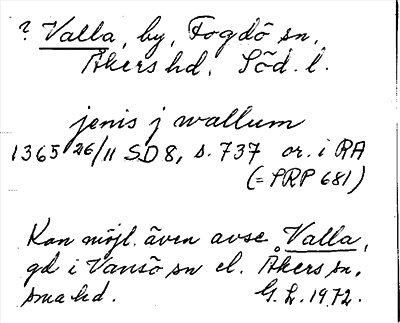 ? Valla, by, Fogdö sn,
Åkers hd, Söd. l.
jenis j wallum
1365 26/11 SD 8, s. 737 or. i RA
(= PRP 681)
Kan möjl. även avse Valla,
gd i Vansö sn el. Åkers sn,
sma hd. G. L. 1972.